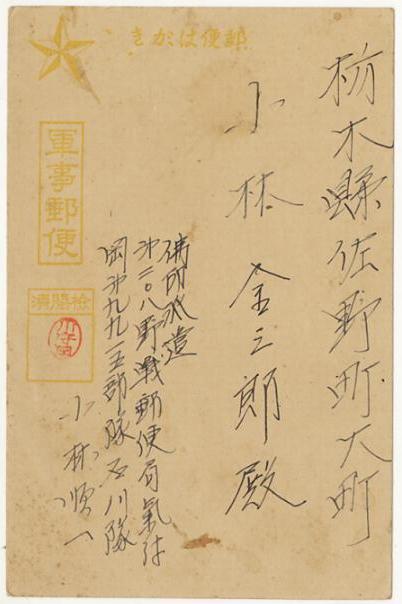 郵便はがき
栃木縣佐野町大町
小林金三郎殿
佛印派遣
第二〇八野戰郵便局氣付
岡第九九一五部隊石川隊
小林順一
軍事郵便
檢閲濟